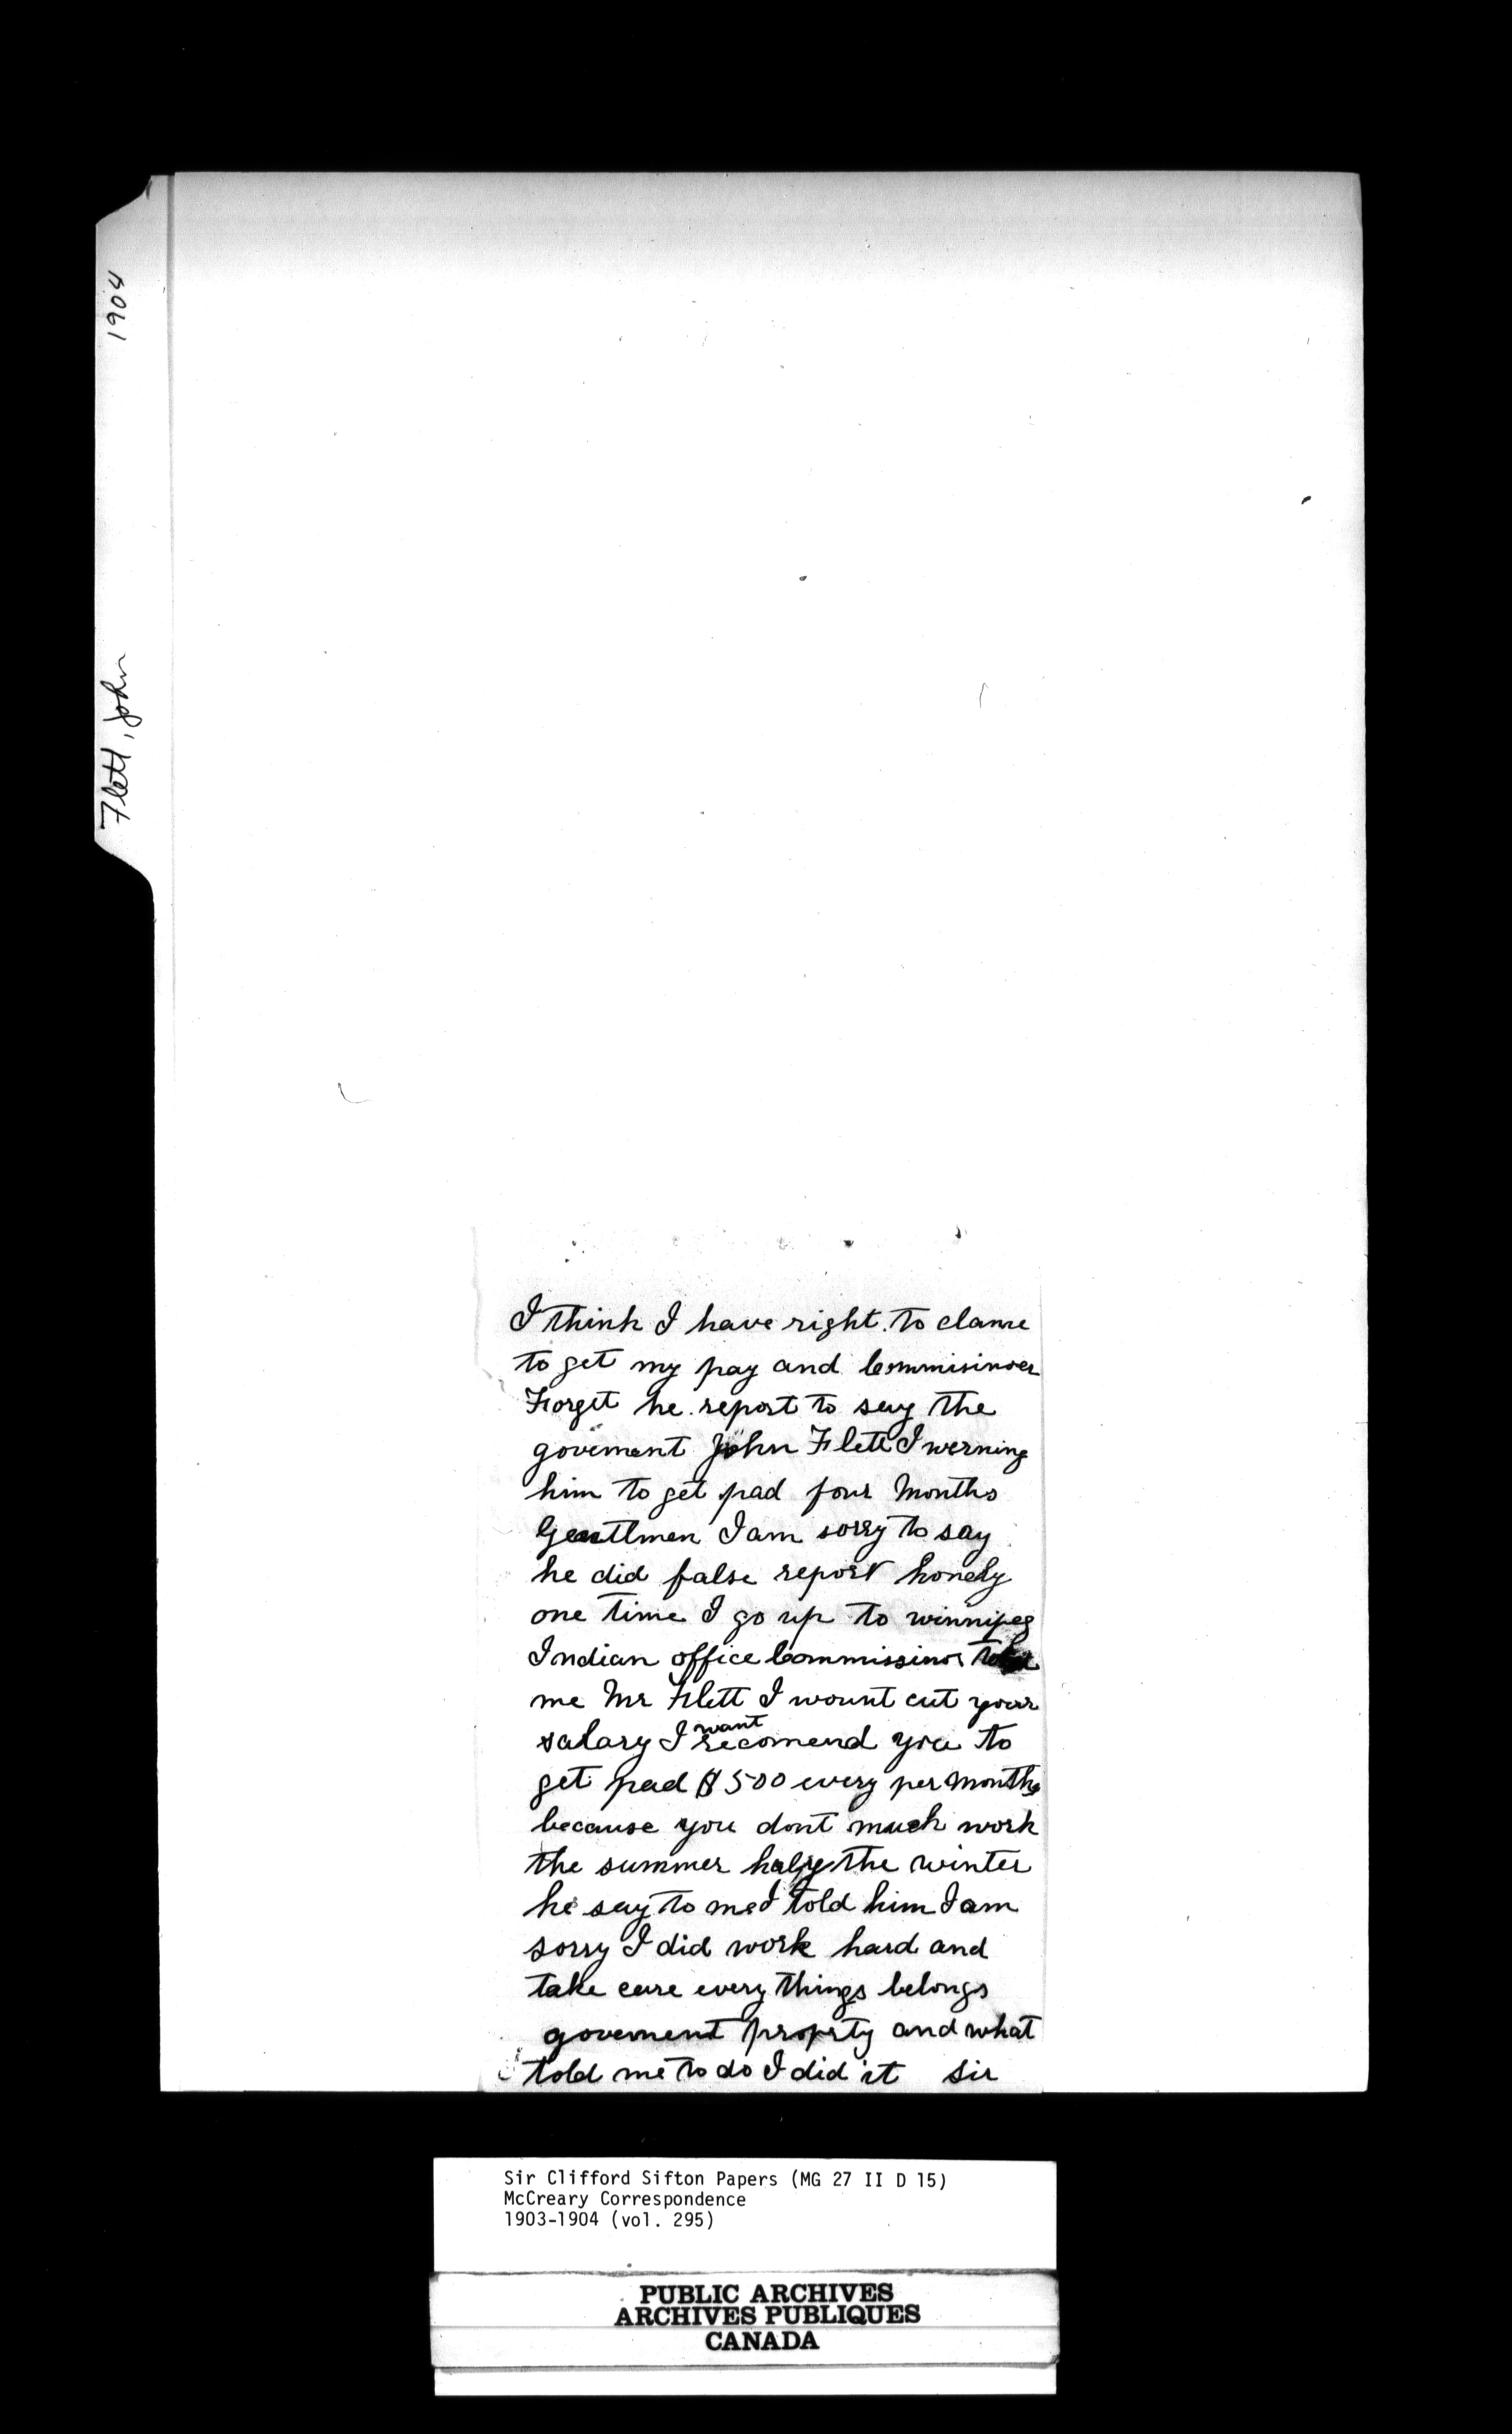 1904
Flett, John
I think I have right to clame
to get my pay and Commisinoer
Forget he report to say the
goverment John Flett I werning
him to get pad four Months
Gentlmen I am sorry to say
he did false report honely
one time I go up to winnipeg
Indian office Commissinor told
me Mr Flett I wount cut your
salary I want recomend you to
get pad $500 every per Months
because you dont much work
the summer halfe the winter
he say to me I told him I am
sorry I did work hard and
take care every things belongs
goverment proprty and what
told me to do I did it Sir
Sir Clifford Sifton Papers (MG 27 II D 15)
McCreary Correspondence
1903-1904 (vol. 295)
PUBLIC ARCHIVES
ARCHIVES PUBLIQUES
CANADA